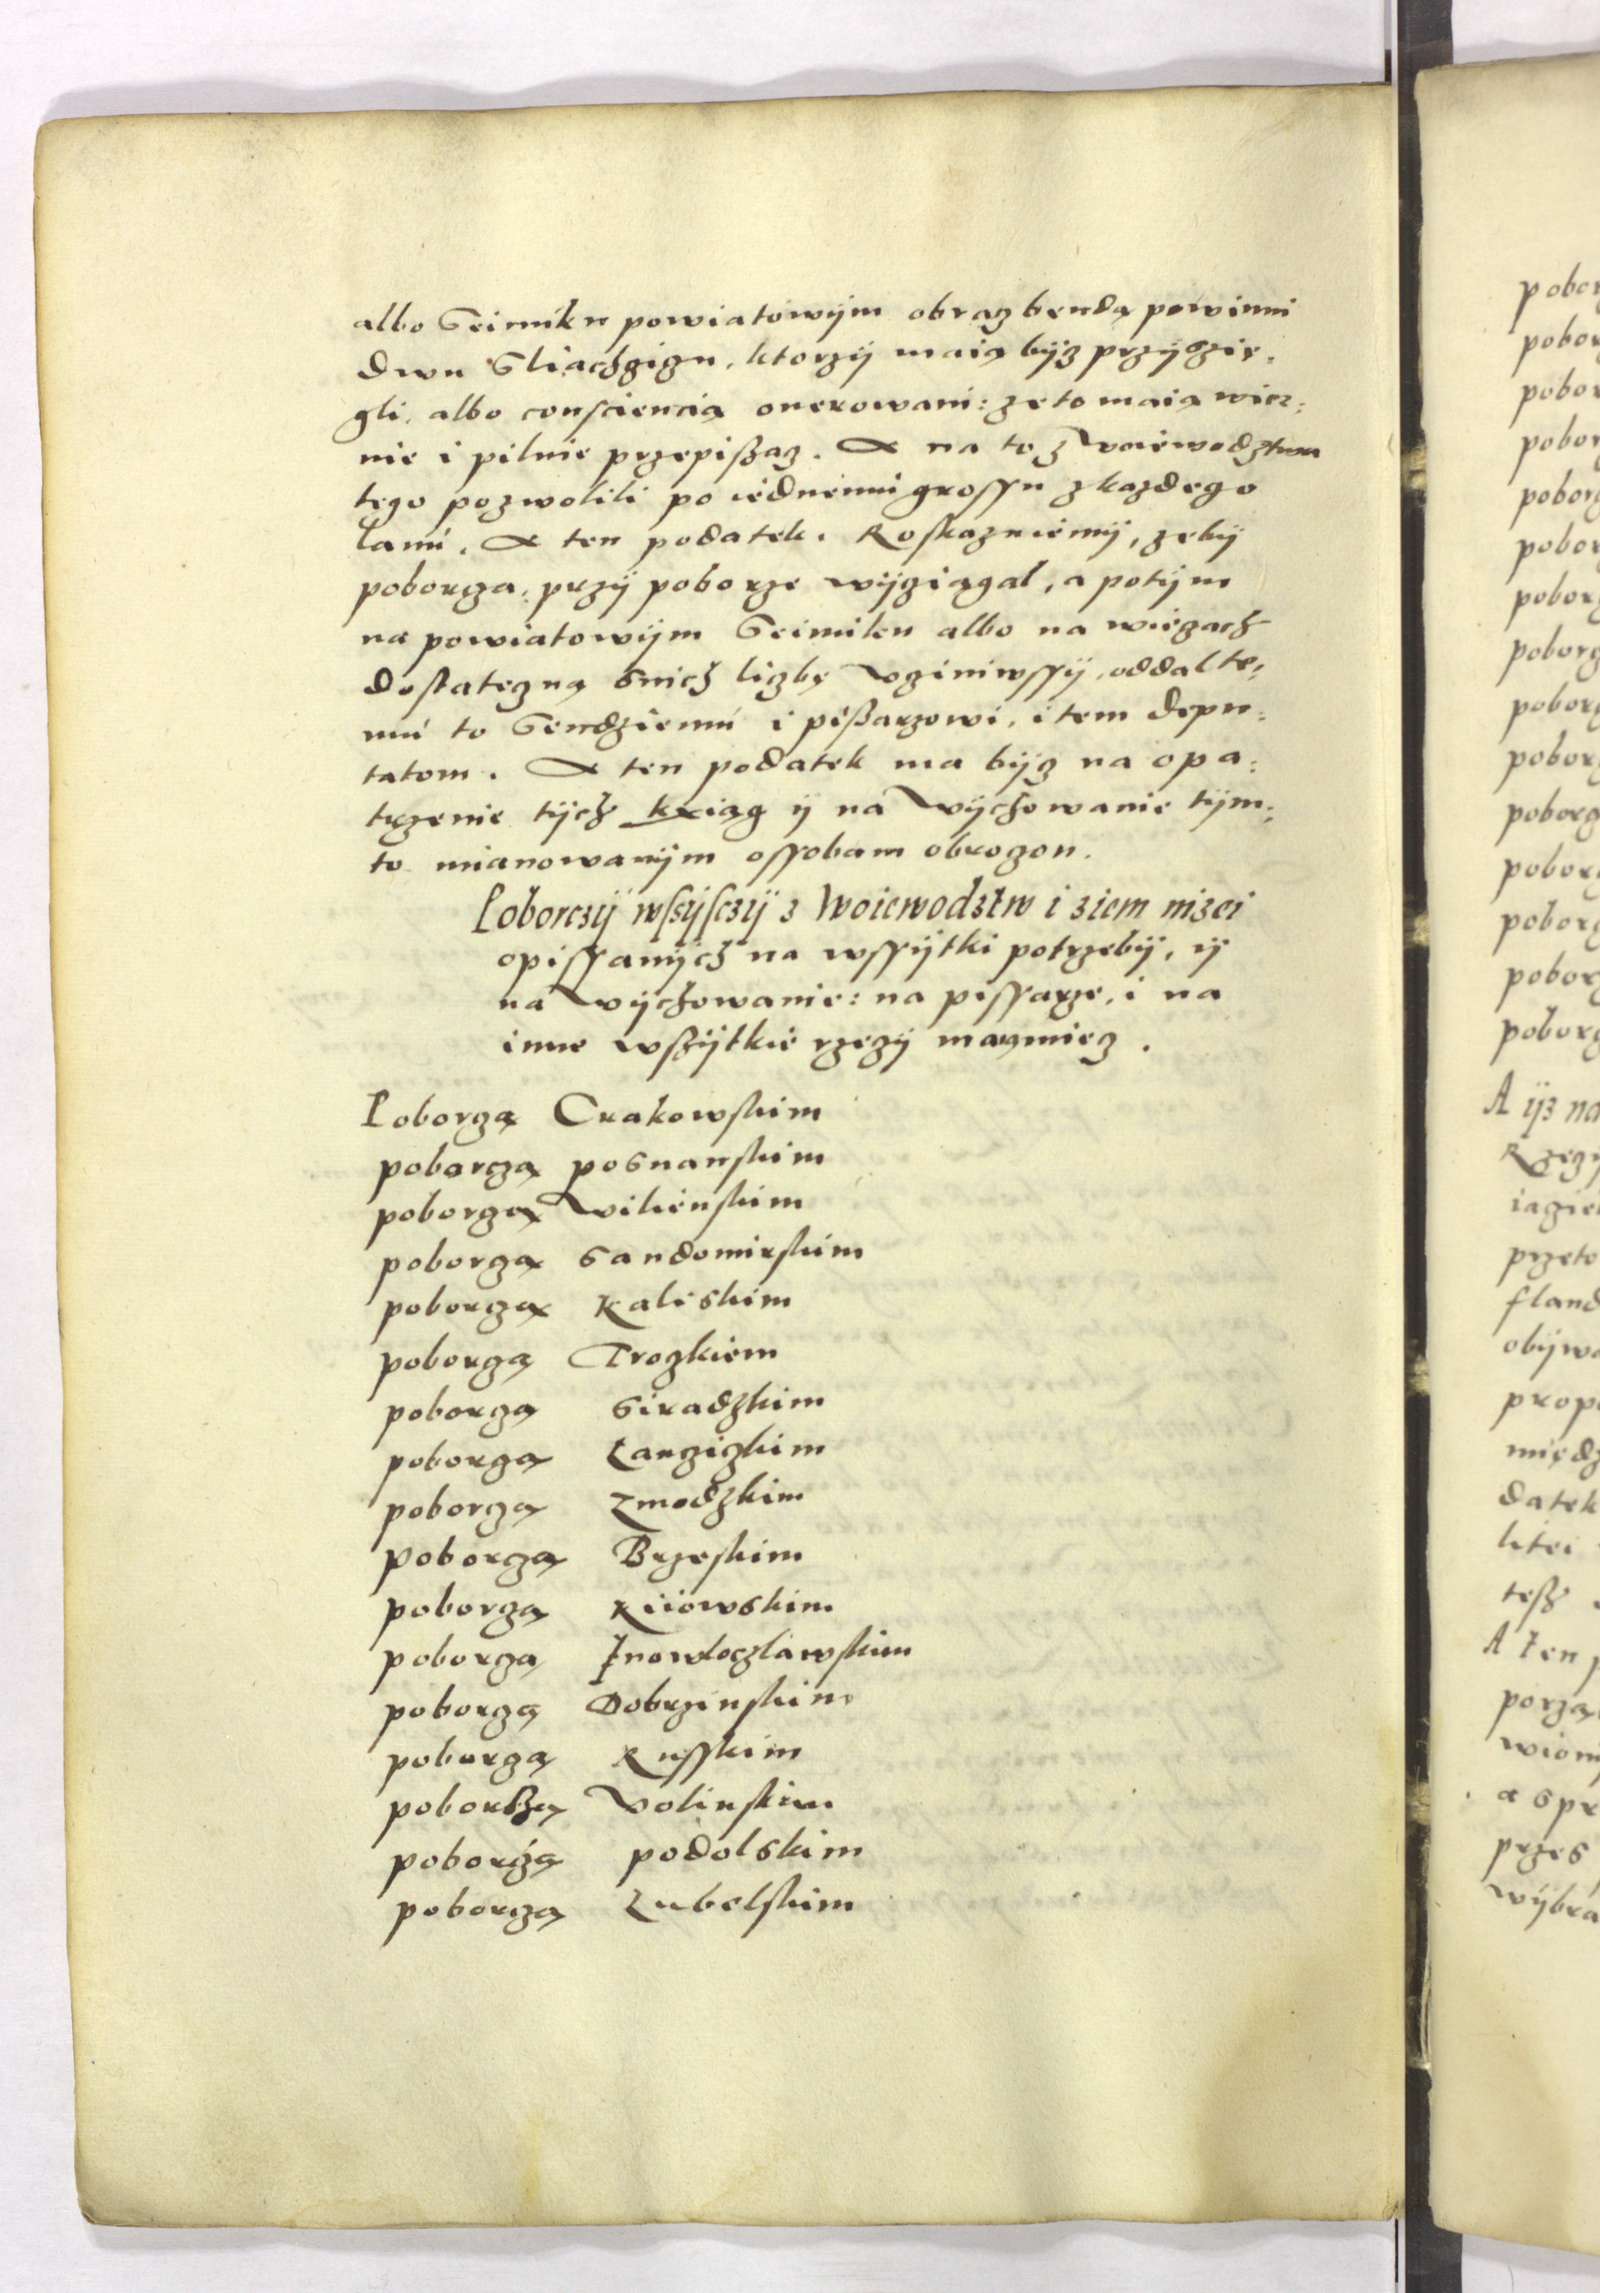 albo Seimiku powiatowijm obracz bendą powinni
dwu Sliachcziczu, ktorzij maią bijcz przijszię,
gli, albo consciencią onerowani: ze to maią wier:
nie i pilnie przepiszacz. A na to z Woiewodztwa
tego pozwolili po iednemu grossu z kazdego
lanú. A ten podatek. Roskazuiemij, zebij
poborcza, przij poborze wijcziągal, a potijm
na powiatowijm Seimiku albo na wieczach
dostateczną snich liczbę Vcziniwssij, oddal te,
mú to Sendziemú i piszarzowi, i tem Depu:
tatom. A ten podatek ma bijcz na opa:
trzenie tijch kxiąg ij na Wijchowanie tijm:
to mianowanijm ossobam obroczon.
Poborczij wssijsczij z Woiewodztw i ziem nizei
opissanijch na wssijtki potrzebij, ij
na Wijchowanie: na pissarze, i na
inne wszijtkie rzeczij maą miecz.
Poborczą Crakowskim
poborczą posnanskim
poborczą Wilienskim
poborczą Sandomirskim
poborczą Kaliskim
poborczą Troczkiem
poborczą Siradzkim
poborczą Lancziczkim
poborczą Zmodzkim
poborczą Brzeskim
poborczą Kiiowskim
poborcza Jnowloczlawskim
poborczą Dobrzinskim
poborczą Russkim
poborczą Wolinskim
poborczą podolskim
poborczą Lubelskim
pobor
pobor
pobor
pobor
poborcz
pobor
poborcz
poborcz
poborcz
poborcz
poborcz
poborcz
poborcz
poborcz
poborcz
A ijz na
Rzeczij
iagiel
przeto
fland
obijwa
prop
międz
datek
litei
tesz
A ten p
porzą
wioni
a spr
przes
wijbra